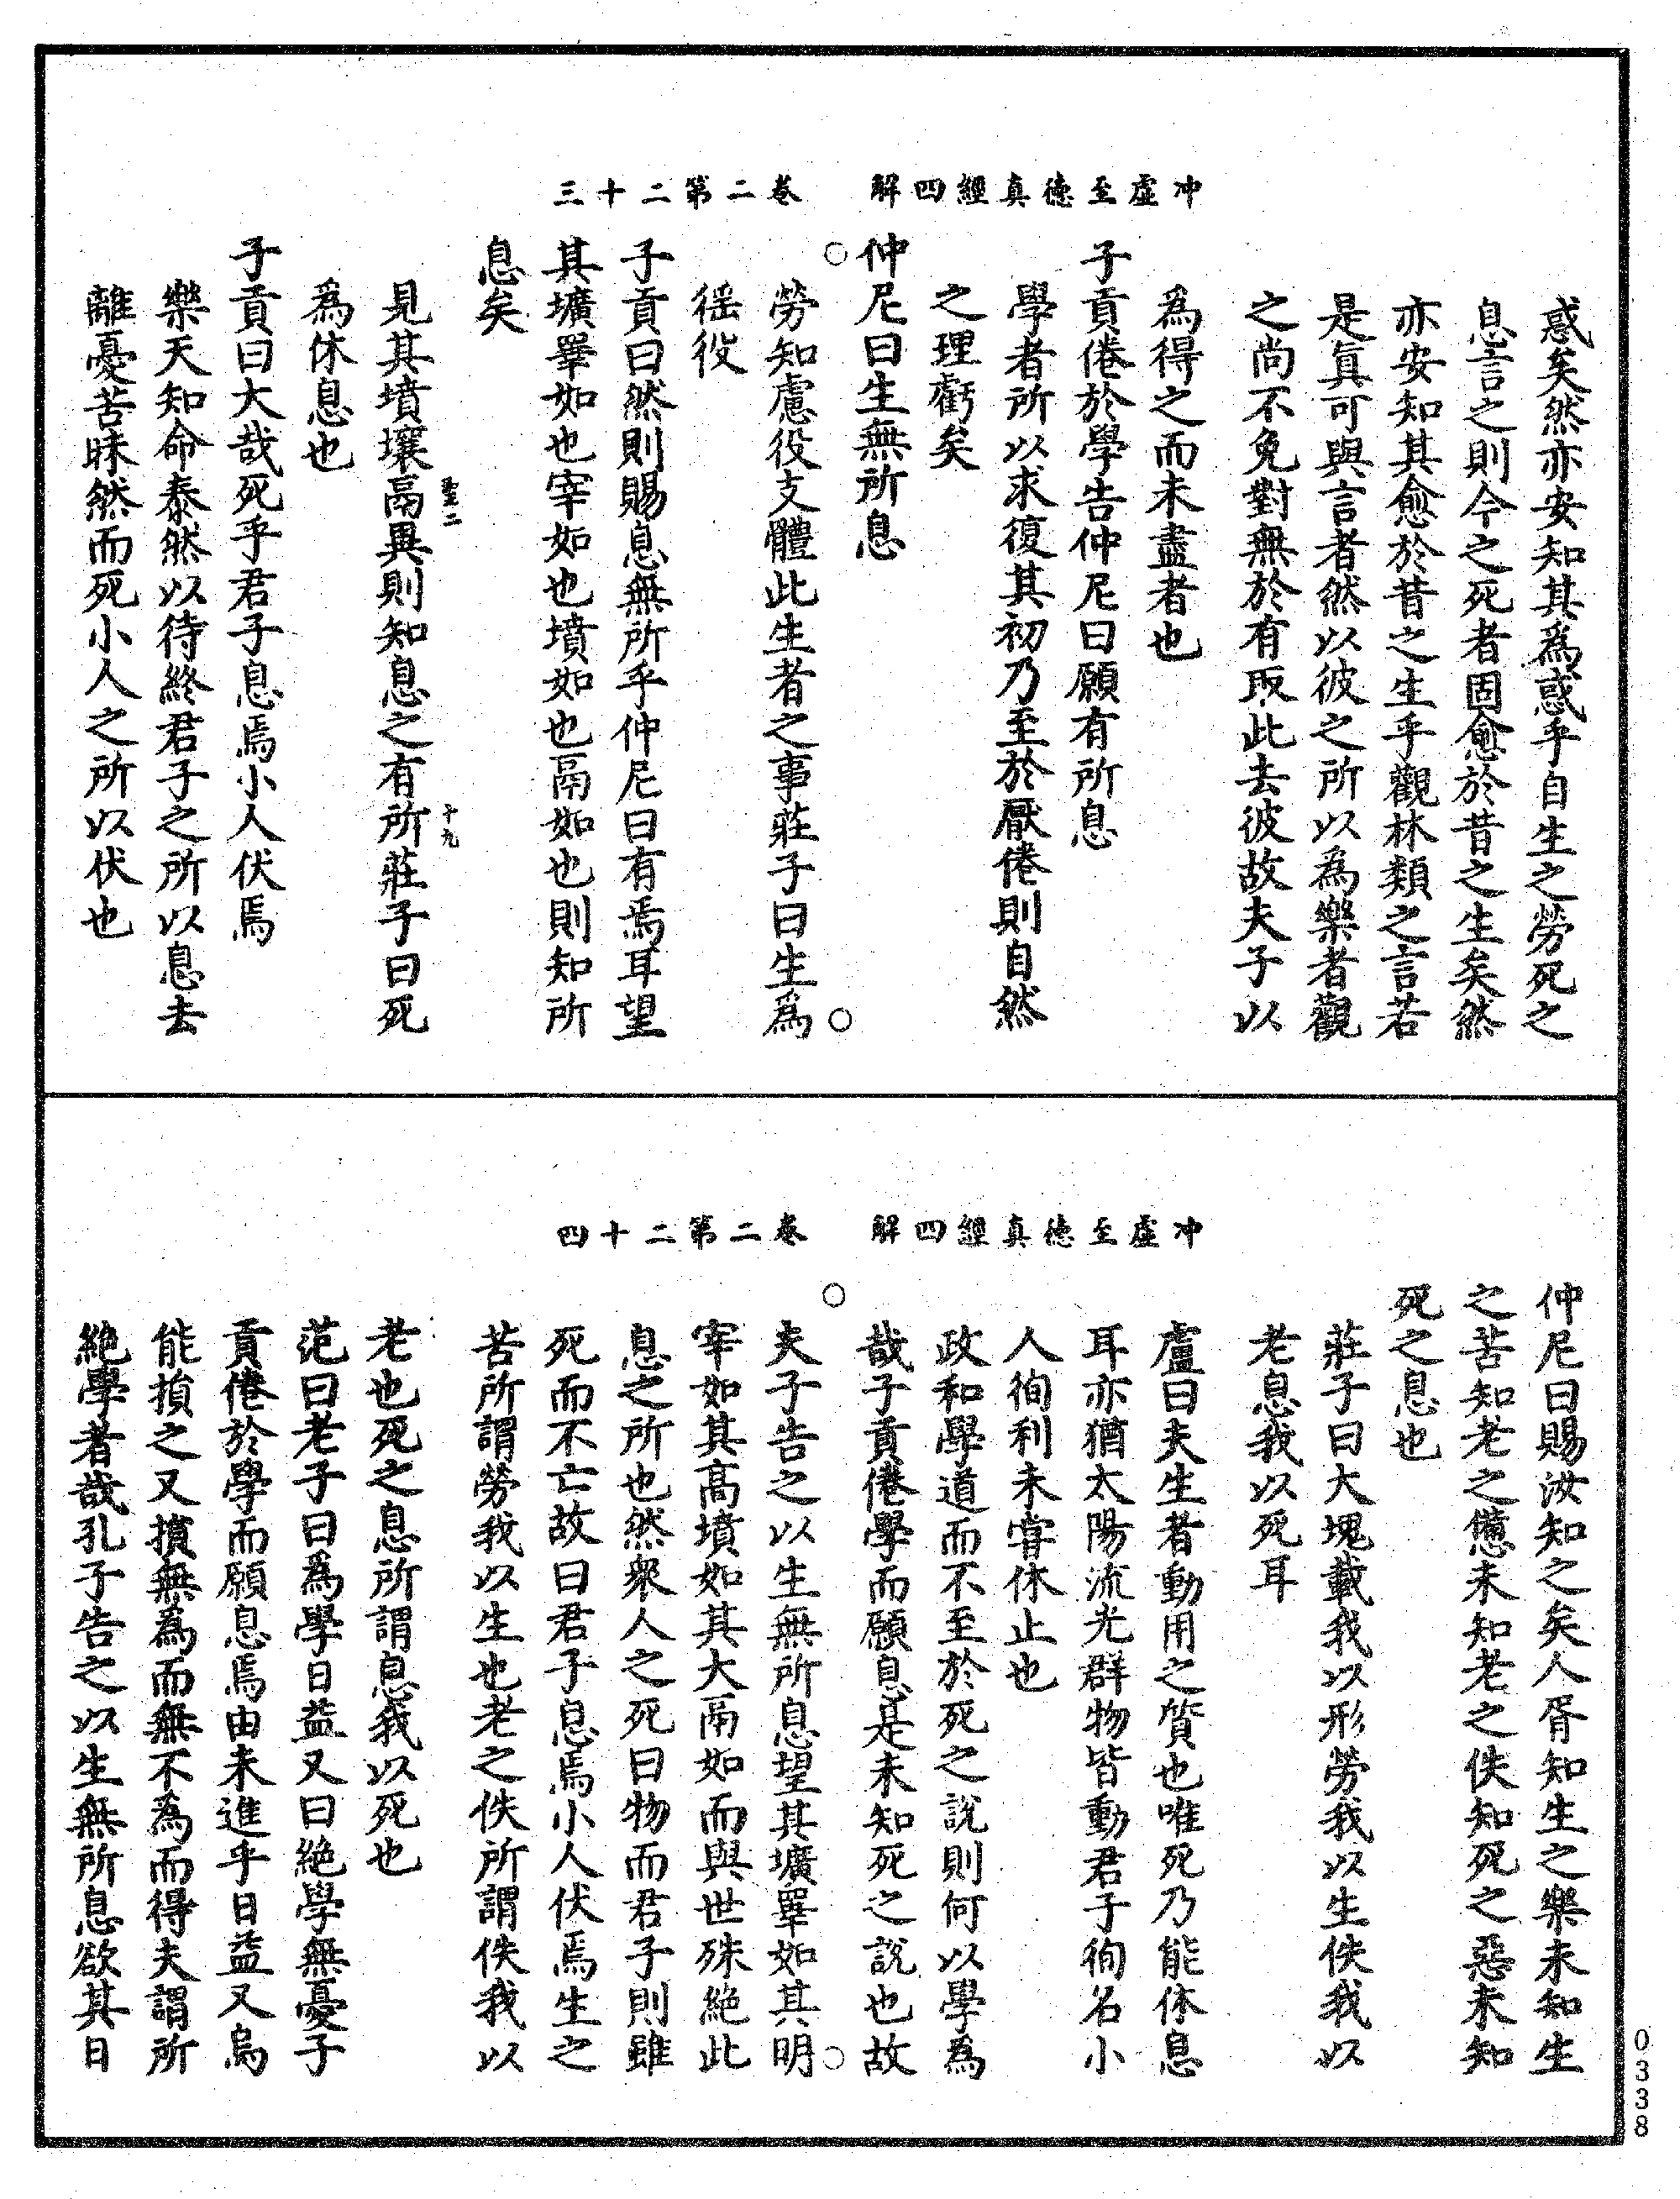 冲虛至德真經四解　卷二第二十三
惑矣然亦安知其爲惑乎自生之勞死之
息言之則今之死者固愈於昔之生矣然
亦安知其愈於昔之生乎觀林類之言若
是真可與言者然以彼之所以為樂者觀
之尚不免對無於有取此去彼故夫子以
爲得之而未盡者也
子貢倦於學告仲尼曰願有所息
學者所以求復其初乃至於厭倦則自然
之理虧矣
仲尼曰生無所息
勞知慮役支體此生者之事莊子曰生爲
徭役
子貢曰然則賜息無所乎仲尼曰有焉耳望
其壙睪如也宰如也墳如也鬲如也則知所
息矣
見其墳壤鬲異則知息之有所莊子曰死
爲休息也
子貢曰大哉死乎君子息焉小人伏焉
樂天知命泰然以待終君子之所以息去
離憂苦昧然而死小人之所以伏也
十九
冲虛至德真經四解　卷二第二十四
仲尼曰賜汝知之矣人胥知生之樂未知生
之苦知老之憊未知老之佚知死之惡未知
死之息也
莊子曰大塊載我以形勞我以生佚我以
老息我以死耳
盧曰夫生者動用之質也唯死乃能休息
耳亦猶太陽流光群物皆動君子徇名小
人徇利未甞休止也
政和學道而不至於死之說則何以學為
哉子貢倦學而願息是未知死之說也故
夫子告之以生無所息望其壙睪如其明
宰如其高墳如其大鬲如而與世殊絶此
息之所也然衆人之死曰物而君子則雖
死而不亡故曰君子息焉小人伏焉生之
苦所謂勞我以生也老之佚所謂佚我以
老也死之息所謂息我以死也
范曰老子曰爲學日益又曰絶學無憂子
貢倦於學而願息焉由未進乎日益又烏
能損之又損無為而無不為而得夫謂所
絶學者哉孔子告之以生無所息欲其日
0338